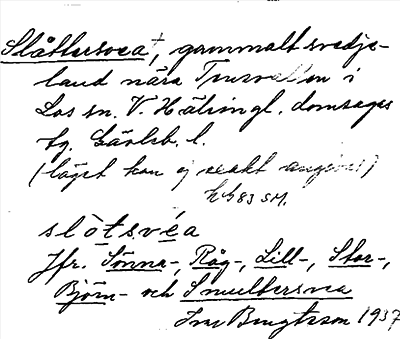 Slåttersvea†, gammalt svedje-
land nära Tensvallen i
Los sn. V. Hälsingl. domsagas
tg. Gävleb. l.
(läget kan ej exakt angivas)
hh83 SM.
slòtsvéa
Jfr. Sönna-, Råg-, Lill-, Stor-,
Björn- och Smultersvea
Ivar Bengtsson 1937